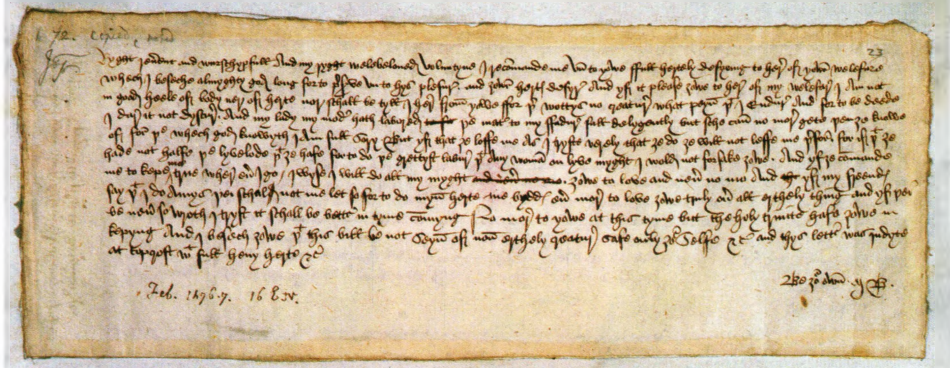 Ryght reuerent and worschypfull And my ryght welebeloued Voluntyne I recomande me vn to yowe full hertely desyring to here of yowr welefare
whech I beseche almyghty god long for to preserve vn to hys plesure and yowr hertys desyre And yf it please yowe to here of my welefare I am not
in good heele of body ner of herte nor schall be tyll I here from yowe ffor þer wottys no creature what peyn þat I endure And for to be deede
I dare it not dyscure And my lady my moder hath labored þe mater to my ffadure full delygently but sche can no more gete þen ye knowe
of for þe whech god knowyth I am full sory But yf that ye loffe me As I tryste verely that ye do ye will not leffe me þerfor for if þat ye
hade not halfe þe lyvelode þat ye hafe for to do þe grettyst labure þat any woman on lyve myght I wold not forsake yowe And yf ye comande
me to kepe me true wher euer I go I wyse I will do all my myght yowe to love and neuer no mo And yf my freendys
say þat I do Amys þei schall not me let so for to do myn herte me byddys euer more to love yowe truly ouer all erthely thing and yf þei
be neuer so wroth I tryst it schall be bettur in tyme comyng No more to yowe at this tyme but the holy trinite hafe yowe in
kepyng And I besech yowe þat this bill be not seyn of non erthely creature safe only your selfe &c and thys lettur was indyte
at Topcroft wt full heuy herte &c
Be your own M B
Feb. 1476.7. 16 E. IV.
23